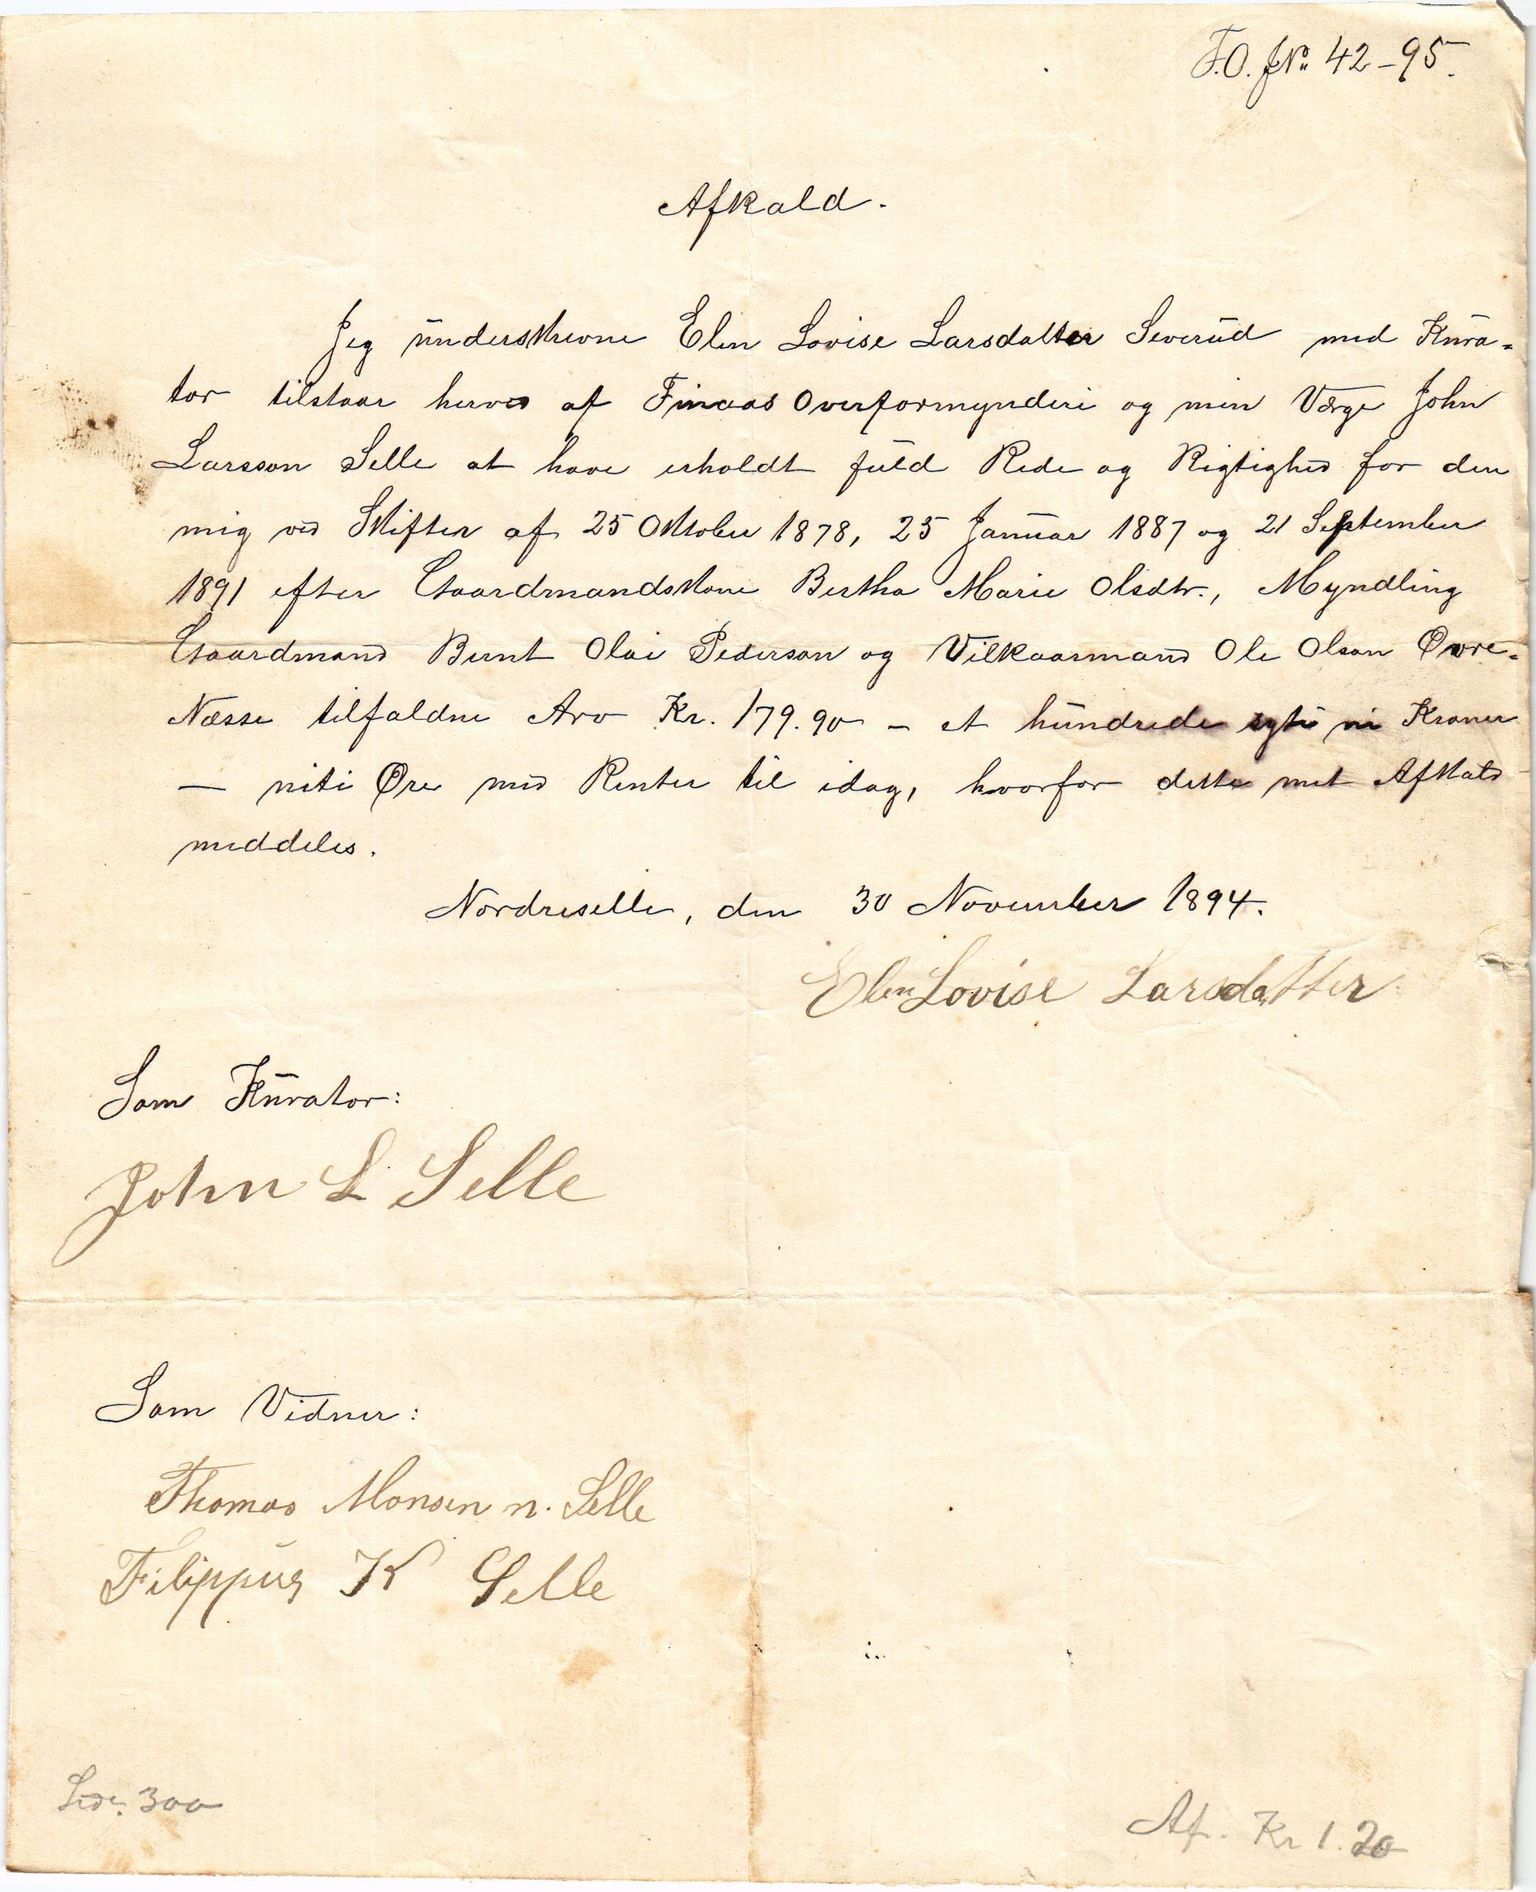 F.O. J№ 42-95.
Afkald.
Jeg underskrevne Elen Lovise Larsdatter Severud med Kura=
tor tilstaar herved af Finaas Overformynderi og min Værge John
Larsson Selle at have erholdt fuld Rede og Rigtighed for den
mig ved Skifter af 25 Oktober 1878, 25 Januar 1887 og 21 September
1891 efter Gaardmandskone Bertha Marie Olsdtr., Myndling
Gaardmand Bernt Olai Pederson og Vilkaarmand Ole Olson Øvre=
Næsse tilfaldne Arv Kr. 179.90 – et hundrede sytti ni Kroner
– niti Øre med Renter til idag, hvorfor dette mit Afkald
meddeles.
Nordreselle, den 30 November 1894.
Elen Lovise Larsdatter
Som Kurator:
John L Selle
Som Vidner:
Thomas Monsen n. Selle
Filippus K Selle
300
Af. Kr 1.20